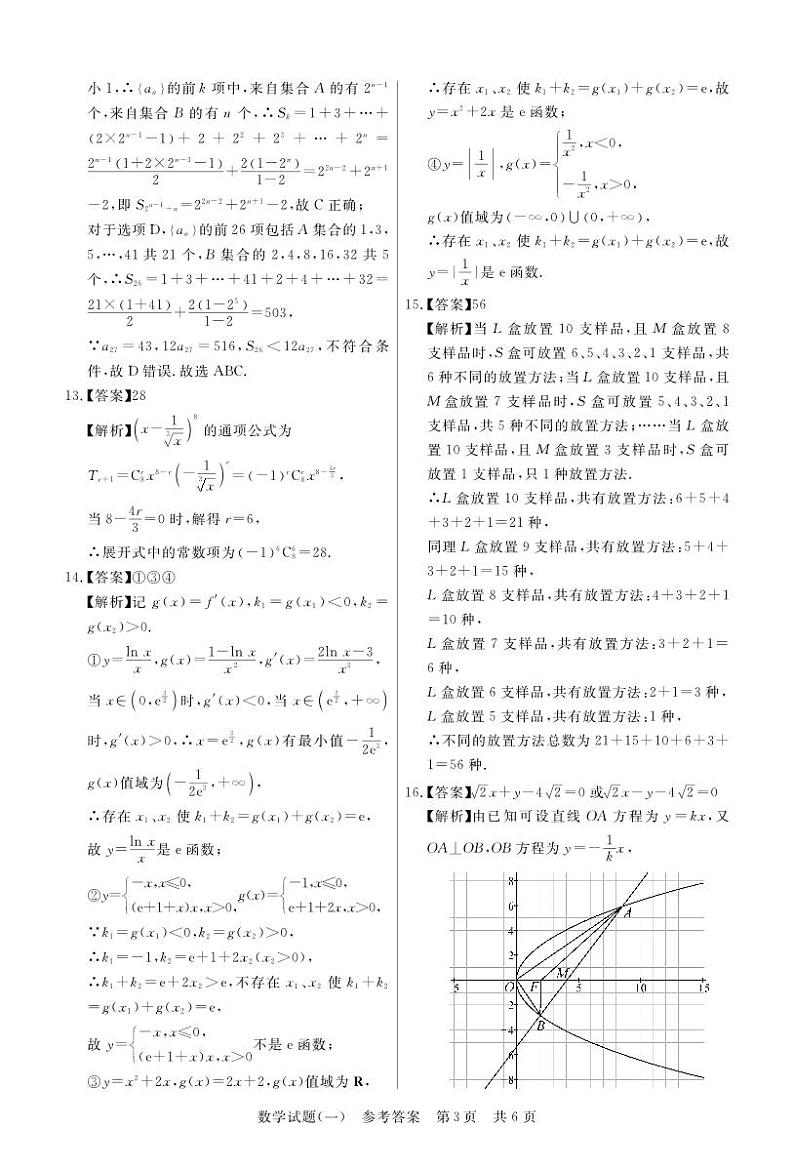 小 1,∴{aₙ}的前 k 项中,来自集合 A 的有 2ⁿ⁻¹
个,来自集合 B 的有 n 个,∴Sₖ=1+3+…+
(2×2ⁿ⁻¹-1)+2+2²+2³+…+2ⁿ=
\frac{2ⁿ⁻¹(1+2×2ⁿ⁻¹-1)}{2}+\frac{2(1-2ⁿ)}{1-2}=2²ⁿ⁻²+2ⁿ⁺¹
-2,即 S_{2ⁿ⁻¹+n}=2²ⁿ⁻²+2ⁿ⁺¹-2,故 C 正确;
对于选项 D,{aₙ}的前 26 项包括 A 集合的 1,3,
5,…,41 共 21 个,B 集合的 2,4,8,16,32 共 5
个,∴S₂₆=1+3+…+41+2+4+…+32=
\frac{21×(1+41)}{2}+\frac{2(1-2⁵)}{1-2}=503,
∵a₂₇=43,12a₂₇=516,S₂₆<12a₂₇,不符合条
件,故 D 错误.故选 ABC.
13.【答案】28
【解析】(x-\frac{1}{\sqrt[3]{x}})⁸ 的通项公式为
T_{r+1}=C₈^r x^{8-r}(-\frac{1}{\sqrt[3]{x}})^r=(-1)^r C₈^r x^{8-\frac{4r}{3}},
当 8-\frac{4r}{3}=0 时,解得 r=6,
∴展开式中的常数项为(-1)⁶C₈⁶=28.
14.【答案】①③④
【解析】记 g(x)=f′(x),k₁=g(x₁)<0,k₂=
g(x₂)>0.
①y=\frac{ln x}{x},g(x)=\frac{1-ln x}{x²},g′(x)=\frac{2ln x-3}{x³},
当 x∈(0,e^{\frac{3}{2}})时,g′(x)<0,当 x∈(e^{\frac{3}{2}},+∞)
时,g′(x)>0,∴x=e^{\frac{3}{2}},g(x)有最小值-\frac{1}{2e³},
g(x)值域为(-\frac{1}{2e³},+∞),
∴存在 x₁、x₂ 使 k₁+k₂=g(x₁)+g(x₂)=e,
故 y=\frac{ln x}{x}是 e 函数;
②y={-x,x≤0, (e+1+x)x,x>0, g(x)={-1,x≤0, e+1+2x,x>0,
∵k₁=g(x₁)<0,k₂=g(x₂)>0,
∴k₁=-1,k₂=e+1+2x₂(x₂>0),
∴k₁+k₂=e+2x₂>e,不存在 x₁、x₂ 使 k₁+k₂
=g(x₁)+g(x₂)=e,
故 y={-x,x≤0, (e+1+x)x,x>0 不是 e 函数;
③y=x²+2x,g(x)=2x+2,g(x)值域为 R,
∴存在 x₁、x₂ 使 k₁+k₂=g(x₁)+g(x₂)=e,故
y=x²+2x 是 e 函数;
④y=|\frac{1}{x}|,g(x)={\frac{1}{x²},x<0, -\frac{1}{x²},x>0,
g(x)值域为(-∞,0)∪(0,+∞),
∴存在 x₁、x₂ 使 k₁+k₂=g(x₁)+g(x₂)=e,故
y=|\frac{1}{x}|是 e 函数.
15.【答案】56
【解析】当 L 盒放置 10 支样品,且 M 盒放置 8
支样品时,S 盒可放置 6、5、4、3、2、1 支样品,共
6 种不同的放置方法;当 L 盒放置 10 支样品,且
M 盒放置 7 支样品时,S 盒可放置 5、4、3、2、1
支样品,共 5 种不同的放置方法;……当 L 盒放
置 10 支样品,且 M 盒放置 3 支样品时,S 盒可
放置 1 支样品,只 1 种放置方法.
∴L 盒放置 10 支样品,共有放置方法:6+5+4
+3+2+1=21 种,
同理 L 盒放置 9 支样品,共有放置方法:5+4+
3+2+1=15 种,
L 盒放置 8 支样品,共有放置方法:4+3+2+1
=10 种,
L 盒放置 7 支样品,共有放置方法:3+2+1=
6 种,
L 盒放置 6 支样品,共有放置方法:2+1=3 种,
L 盒放置 5 支样品,共有放置方法:1 种,
∴不同的放置方法总数为 21+15+10+6+3+
1=56 种.
16.【答案】√2x+y-4√2=0 或√2x-y-4√2=0
【解析】由已知可设直线 OA 方程为 y=kx,又
OA⊥OB,OB 方程为 y=-\frac{1}{k}x,
8
6
A
4
2
5 O F M 5 10 15
2
B
-4
6
8
数学试题(一) 参考答案 第 3 页 共 6 页